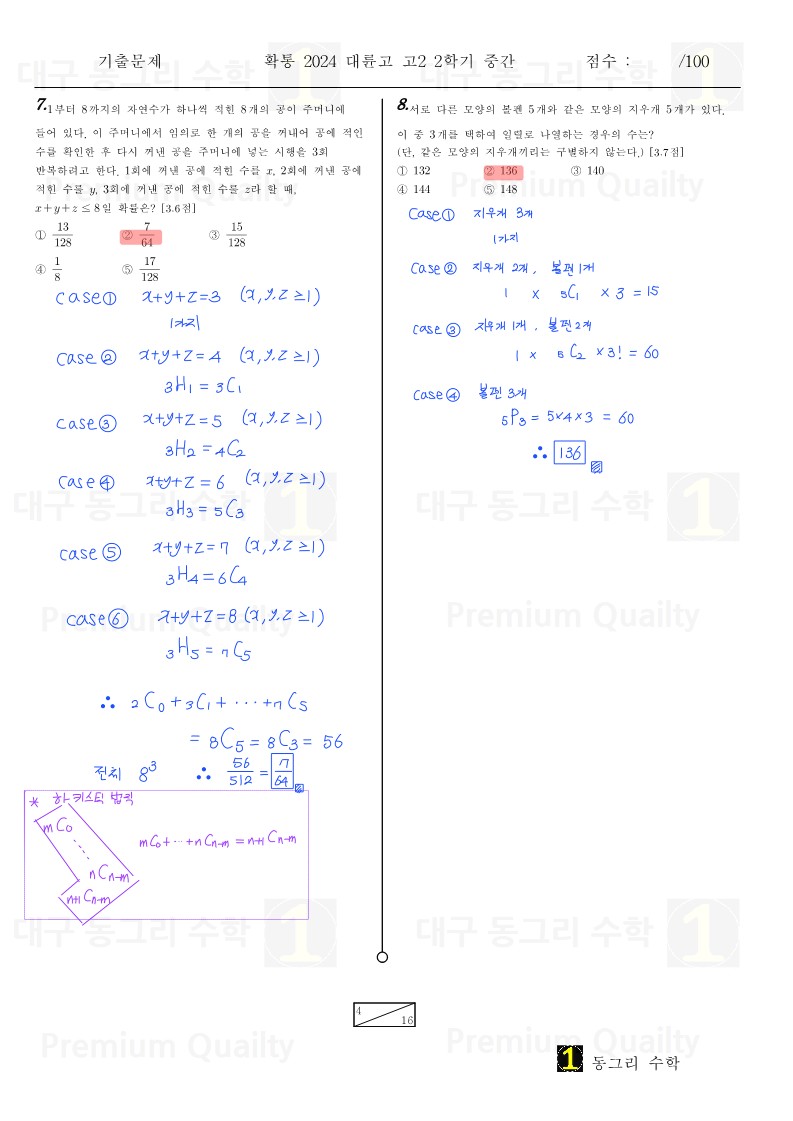 기출문제 확통 2024 대륜고 고2 2학기 중간 점수 : /100
7. 1부터 8까지의 자연수가 하나씩 적힌 8개의 공이 주머니에
들어 있다. 이 주머니에서 임의로 한 개의 공을 꺼내어 공에 적인
수를 확인한 후 다시 꺼낸 공을 주머니에 넣는 시행을 3회
반복하려고 한다. 1회에 꺼낸 공에 적힌 수를 x, 2회에 꺼낸 공에
적힌 수를 y, 3회에 꺼낸 공에 적힌 수를 z라 할 때,
x+y+z≤8일 확률은? [3.6점]
① 13/128 ② 7/64 ③ 15/128
④ 1/8 ⑤ 17/128
case① x+y+z=3 (x,y,z≥1)
1가지
case② x+y+z=4 (x,y,z≥1)
₃H₁ = ₃C₁
case③ x+y+z=5 (x,y,z≥1)
₃H₂ = ₄C₂
case④ x+y+z=6 (x,y,z≥1)
₃H₃ = ₅C₃
case⑤ x+y+z=7 (x,y,z≥1)
₃H₄ = ₆C₄
case⑥ x+y+z=8 (x,y,z≥1)
₃H₅ = ₇C₅
∴ ₂C₀+₃C₁+···+₇C₅
= ₈C₅ = ₈C₃ = 56
전체 8³ ∴ 56/512 = 7/64
* 하키스틱 법칙
mC₀
nCn-m
n+1Cn-m
mC₀+···+nCn-m = n+1Cn-m
8. 서로 다른 모양의 볼펜 5개와 같은 모양의 지우개 5개가 있다.
이 중 3개를 택하여 일렬로 나열하는 경우의 수는?
(단, 같은 모양의 지우개끼리는 구별하지 않는다.) [3.7점]
① 132 ② 136 ③ 140
④ 144 ⑤ 148
case① 지우개 3개
1가지
case② 지우개 2개, 볼펜 1개
1 × ₅C₁ × 3 = 15
case③ 지우개 1개, 볼펜 2개
1 × ₅C₂ × 3! = 60
case④ 볼펜 3개
₅P₃ = 5×4×3 = 60
∴ 136
4
16
1 동그리 수학
대구 동그리 수학 1
Premium Quailty